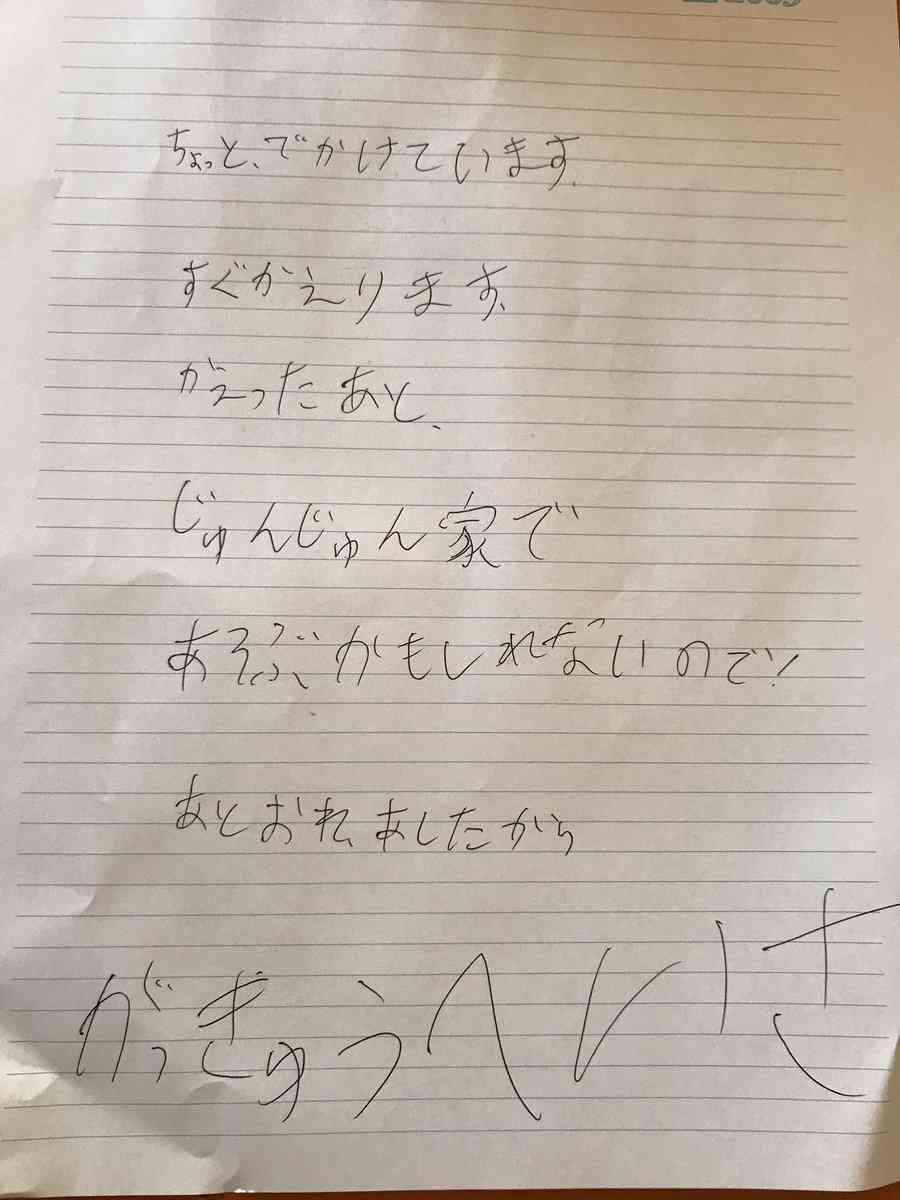 ちょっと、でかけています。
すぐかえります、
がえったあと、
じゅんじゅん家で
あそぶかもしれないので!
あとおれあしたから
がっきゅうへいさ